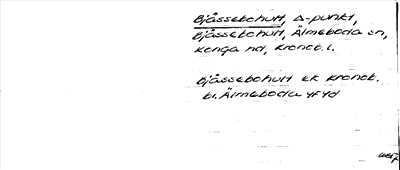 Bjåssebohult, Δ-punkt,
Bjåssebohult, Älmeboda sn,
Konga hd, Kronob. l.
Bjåssebohult ek Kronob.
bl. Älmeboda 4F4d